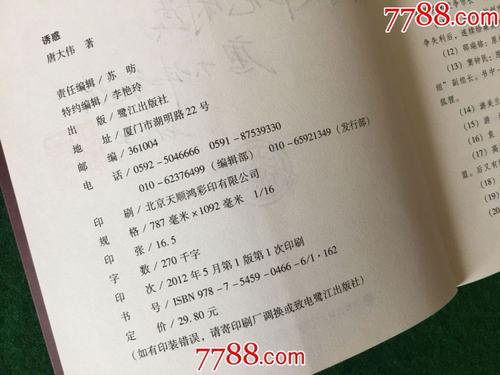 7788.com
诱惑
唐大伟 著
责任编辑/苏 昉
特约编辑/李艳玲
出 版/鹭江出版社
地 址/厦门市湖明路22号
邮 编/361004
电 话/0592-5046666 0591-87539330
010-62376499（编辑部） 010-65921349（发行部）
印 刷/北京天顺鸿彩印有限公司
规 格/787毫米×1092毫米 1/16
印 张/16.5
字 数/270千字
印 次/2012年5月第1版第1次印刷
书 号/ISBN 978-7-5459-0466-6/I·162
定 价/29.80元
（如有印装错误，请寄印刷厂调换或致电鹭江出版社）
争失利后，连续给柬
(12) 邓瑞格：原
(13) 窦钟民：原
组”副组长。书中
狐狸。
(14)
(15) 游
(16) 袁
(17) 高
墨。后又有
(18)
(19)
(20
7788.com